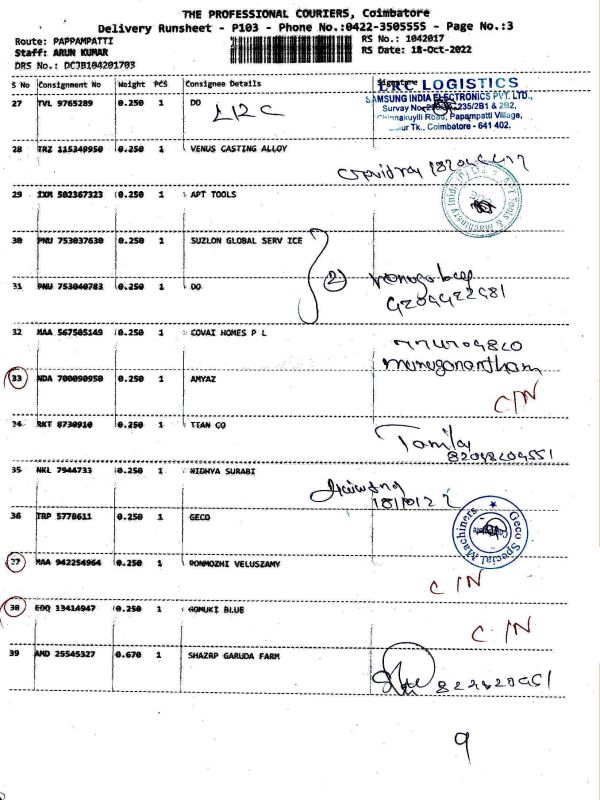 THE PROFESSIONAL COURIERS, Coimbatore
Delivery Runsheet - P103 - Phone No.:0422-3505555 - Page No.:3
Route: PAPPAMPATTI RS No.: 1042017
Staff: ARUN KUMAR RS Date: 18-Oct-2022
DRS No.: DCJB104201703
S No Consignment No Weight PCS Consignee Details Signature
LRC LOGISTICS
27 TVL 9765289 0.250 1 DO
SAMSUNG INDIA ELECTRONICS PVT. LTD.,
235/2B1 & 2B2,
Road, Papampatti Village,
Tk., Coimbatore - 641 402.
28 TRZ 115349950 0.250 1 VENUS CASTING ALLOY
29 IXM 502367323 0.250 1 APT TOOLS
30 PNU 753037630 0.250 1 SUZLON GLOBAL SERV ICE
2
31 PNU 753040783 0.250 1 DO
32 MAA 567505149 0.250 1 COVAI HOMES P L
muruganantham
33 NDA 700090950 0.250 1 AMYAZ
C/N
34 RKT 8730910 0.250 1 TTAN CO
35 NKL 7944733 0.250 1 NIDHYA SURABI
36 TRP 5778611 0.250 1 GECO
Geco Special Machiners
37 MAA 942254964 0.250 1 PONMOZHI VELUSZAMY
C/N
38 EDQ 13414947 0.250 1 GOMUKI BLUE
C/N
39 AMD 25545327 0.670 1 SHAZRP GARUDA FARM
9